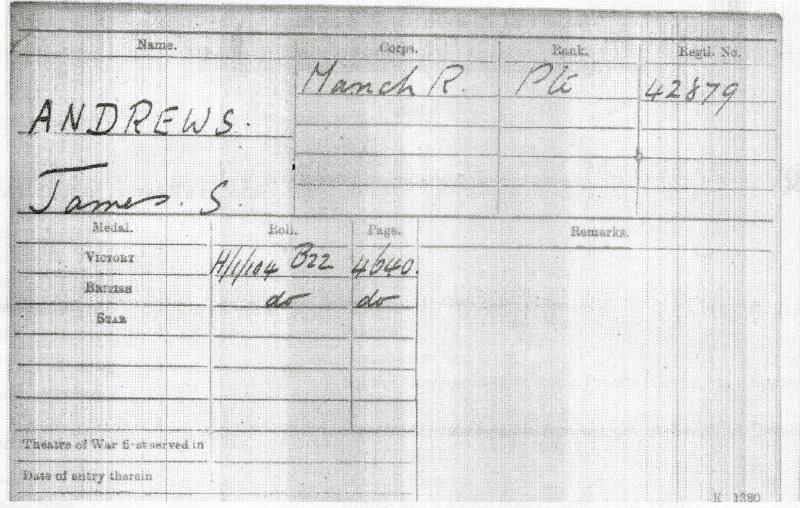 Name. Corps. Rank. Regtl. No.
Manch R. Pte 42879
ANDREWS.
James. S.
Medal. Roll. Page. Remarks.
VICTORY H/1/104 B22 4640.
BRITISH do do
STAR
Theatre of War first served in
Date of entry therein
K 1380